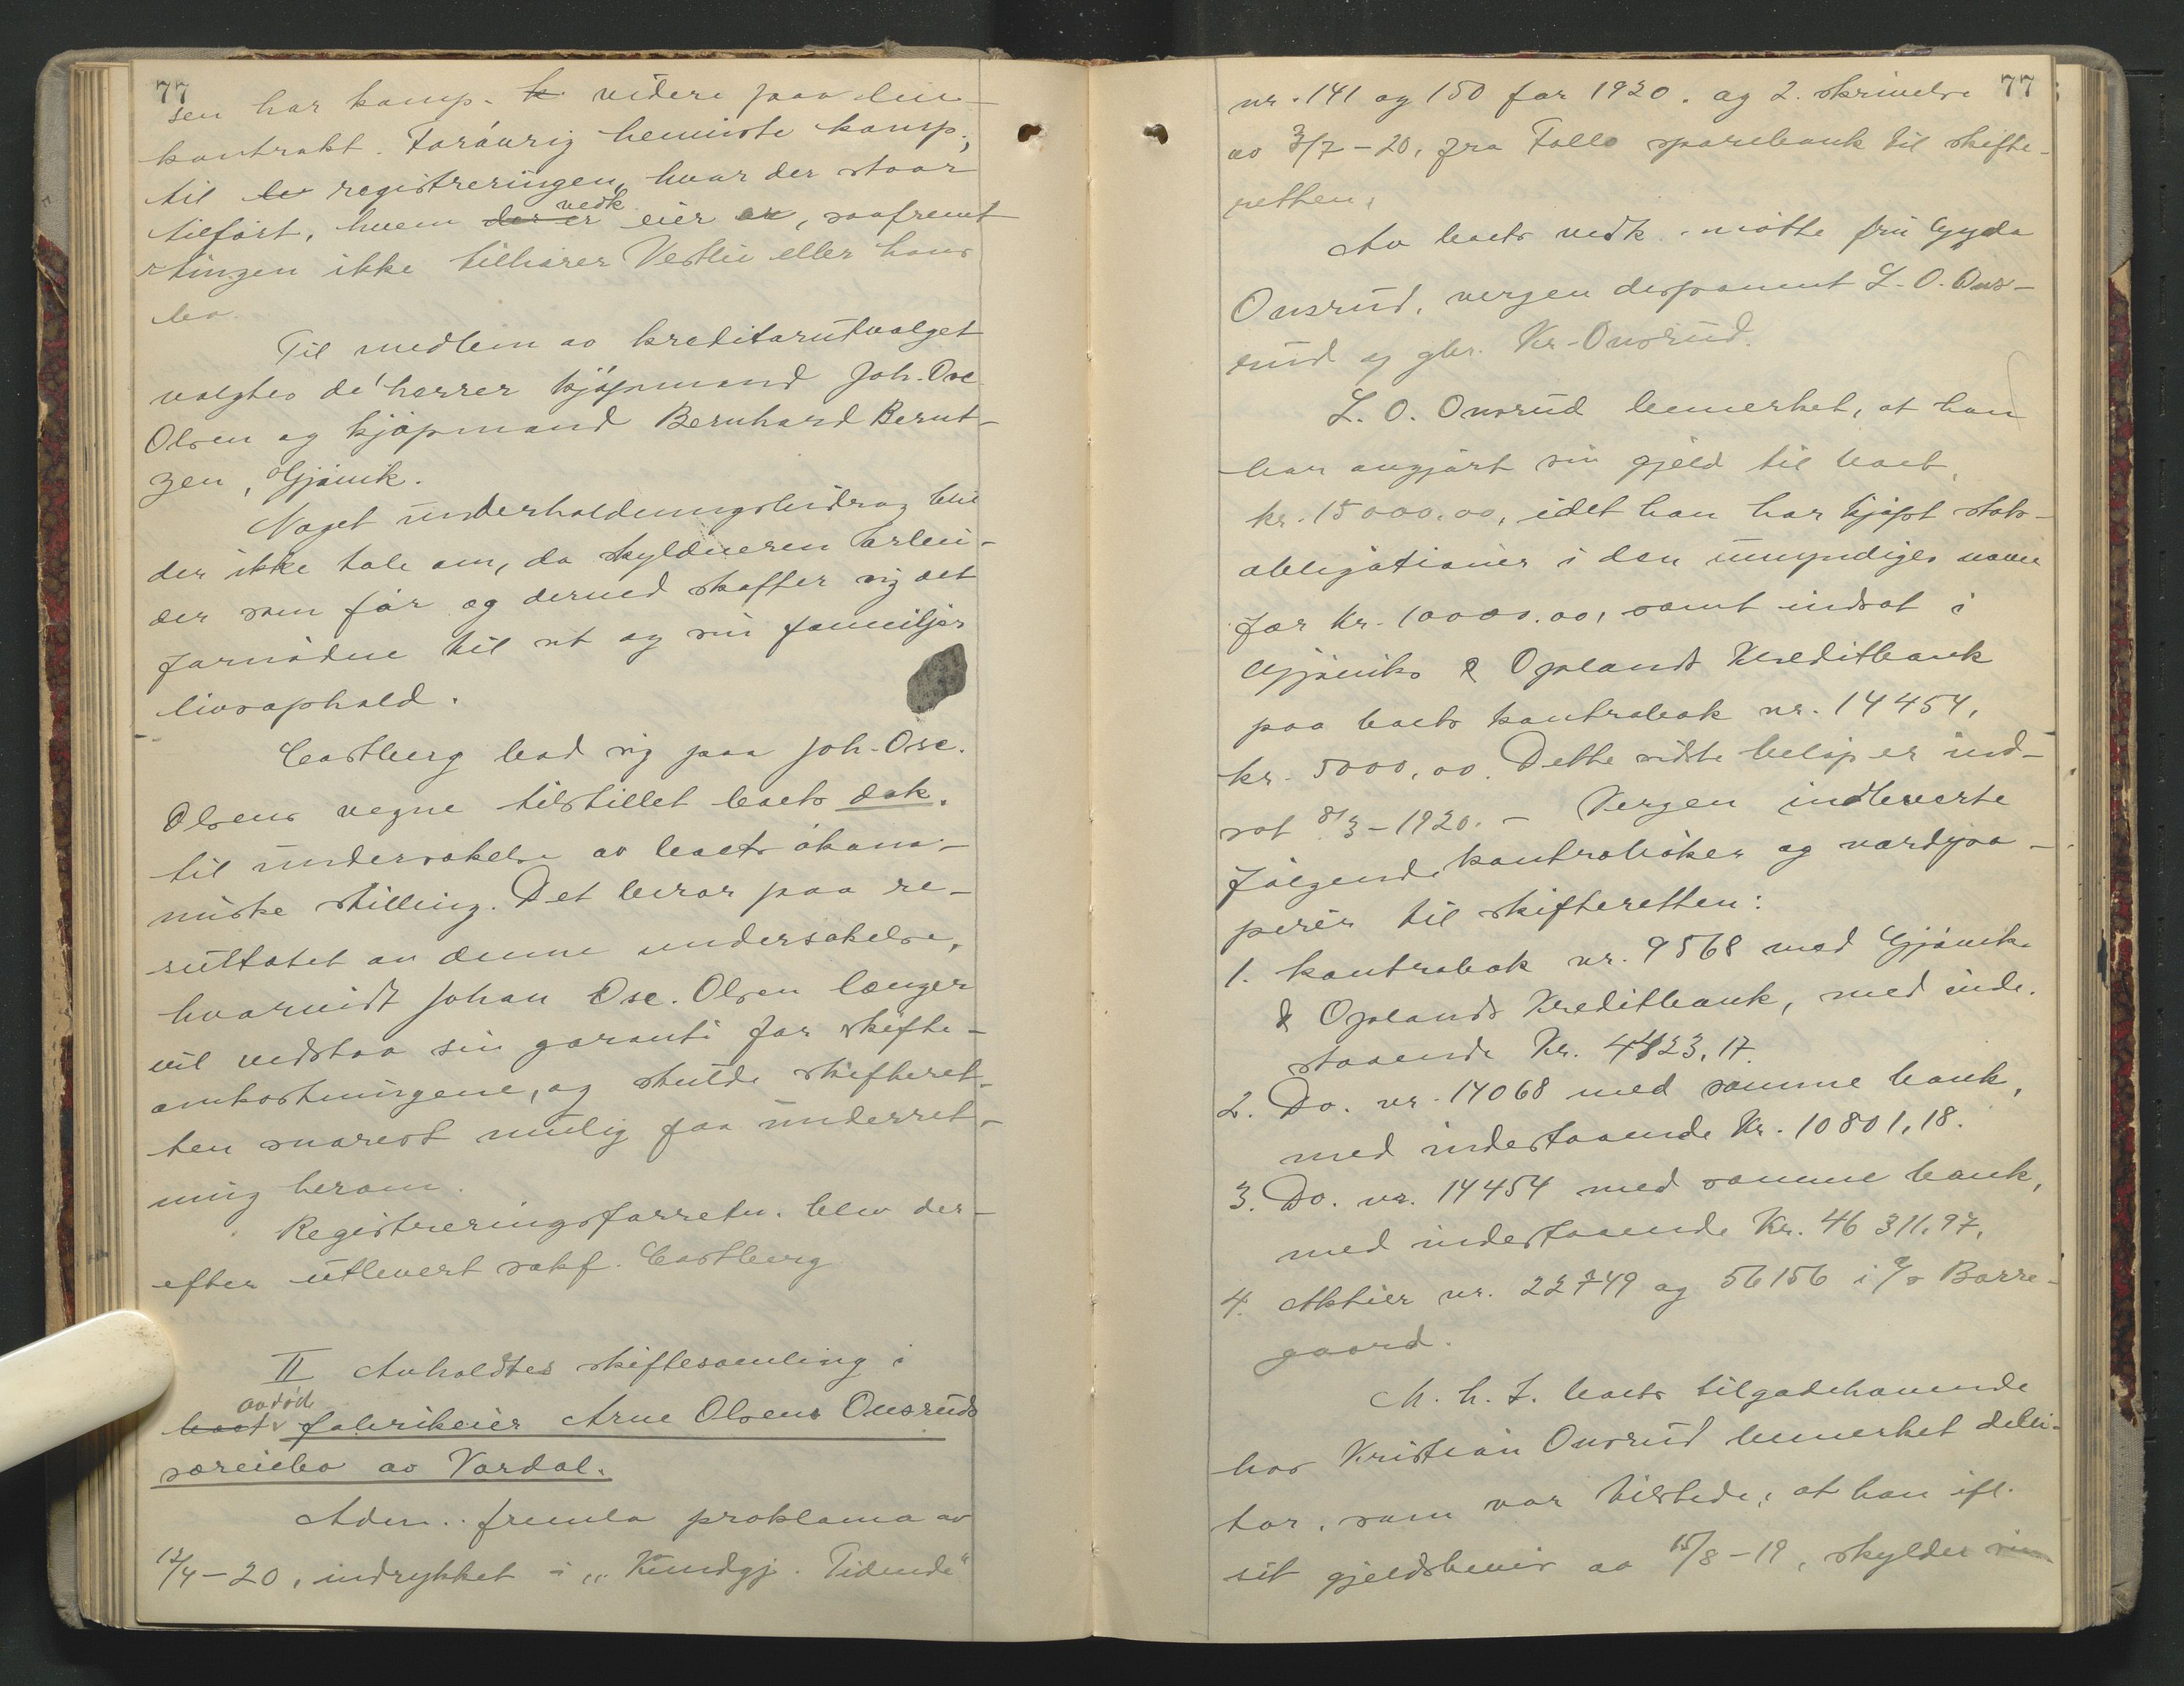 77
sen har komp. k videre paa lei-
kontrakt. Forøvrig henviste komp.
til be registreringen, hvor der staar
tilført, hvem der er vedk eier er, saafremt
tingen ikke tilhører Vestli eller hans
bo.
Til medlem av kreditorutvalget
valgtes de herrer kjøpmand Joh. Osc.
Olsen og kjøpmand Bernhard Bernt-
zen, Gjøvik.
Noget underholdningsbidrag blir
der ikke tale om, da skyldneren arbei-
der som før og derved skaffer sig det
fornødne til sit og sin familjes
livsophold.
Castberg bad sig paa Joh. Osc.
Olsens vegne tilstillet boets dok.
til undersøkelse av boets økono-
miske stilling. Det beror paa re-
sultatet av denne undersøkelse,
hvorvidt Johan Osc. Olsen længer
vil vedstaa sin garanti for skifte-
omkostningene, og skulde skifteret-
ten snarest mulig faa underret-
ning herom.
Registreringsforretn. blev der-
efter utlevert sakf. Castberg
II Avholdtes skiftesamling i
boet avdøde fabrikeier Arne Olsens Onsruds
særeiebo av Vardal.
Adm. fremla proklama av
12/4-20, indrykket i "Kundgj. Tidende"
77
nr. 141 og 150 for 1920. og 2. skrivelse
av 3/7-20, fra Follo sparebank til skifte-
retten,
Av boets vedk. møtte fru Gyda
Onsrud, vergen disponent L. O. Ons-
rud og gbr. Kr. Onsrud.
L. O. Onsrud bemerket, at han
har avgjort sin gjeld til boet,
kr. 15000.00, idet han har kjøpt stats-
obligationer i den umyndiges navn
for kr. 10000.00, samt indsat i
Gjøviks & Oplands Kreditbank
paa boets kontrabok nr. 14454,
kr. 5000,00. Dette sidste beløp er ind-
sat 8/3-1920. - Vergen indleverte
følgende kontrabøker og værdipa-
pirer til skifteretten:
1. Kontrabok nr. 9568 med Gjøviks
& Oplands Kreditbank, med inde-
staaende Kr. 4423,17.
2. Do. nr. 14068 med samme bank,
med indestaaende Kr. 10801,18.
3. Do. nr. 14454 med samme bank,
med indestaaende Kr. 46311,97,
4. Aktier nr. 22749 og 56156 i A/S Borre-
gaard.
M. h. t. boets tilgodehavende
hos Kristian Onsrud bemerket debi-
tor, som var tilstede, at han ifl.
sit gjeldsbevis av 15/8-19, skylder